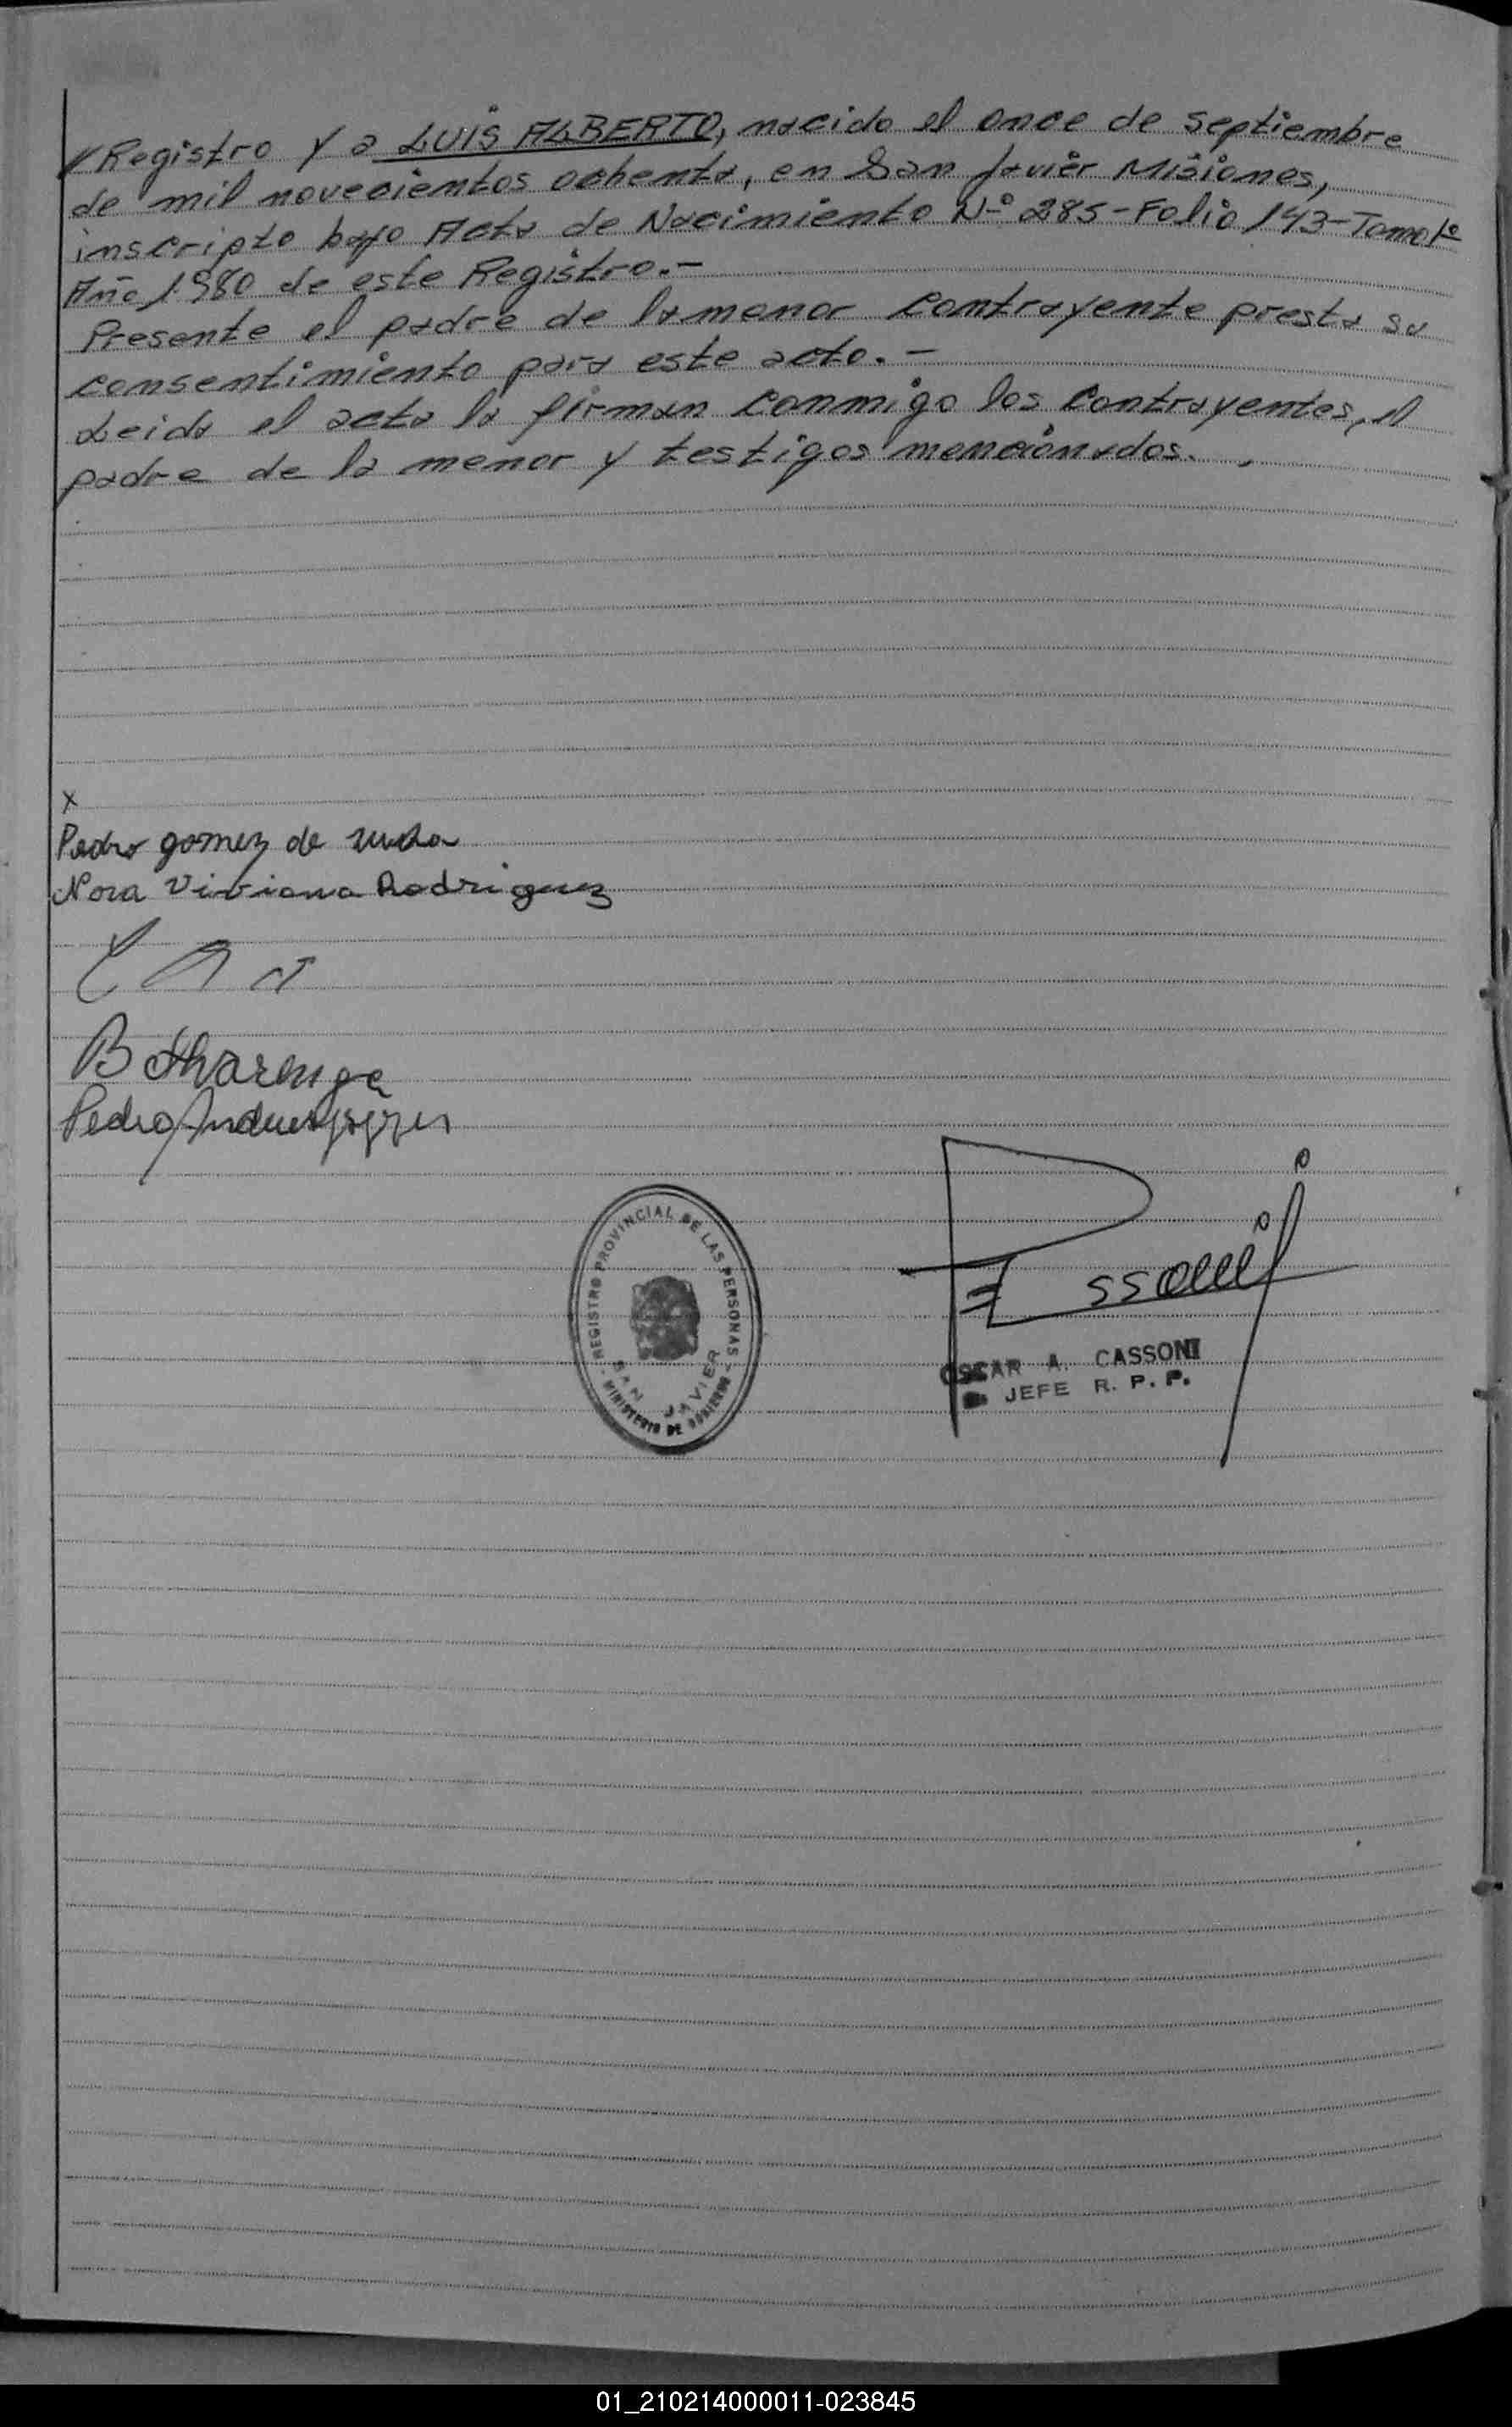 Registro y a LUIS ALBERTO, nacido el once de septiembre
de mil novecientos ochenta, en San Javier Misiones,
inscripto bajo Acta de Nacimiento Nº 285-Folio 143-Tomo 1º
Año 1980 de este Registro.-
Presente el padre de la menor contrayente presta su
consentimiento para este acto.-
Leida el acta la firman conmigo los contrayentes, el
padre de la menor y testigos mencionados.
x
Pedro gomez de
Nora Viviana Rodriguez
B
Pedro
REGISTRO PROVINCIAL DE LAS PERSONAS
SAN JAVIER
MINISTERIO DE GOBIERNO
OSCAR A. CASSONI
JEFE R. P. P.
01_210214000011-023845